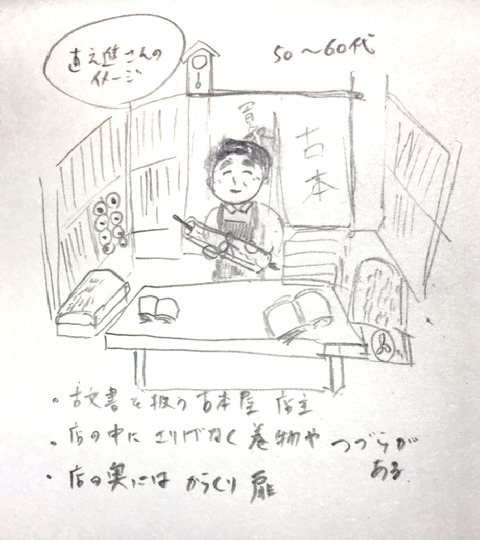 直之進さんの
イメージ
50〜60代
買
古本
・古文書を扱う古本屋 店主
・店の中にさりげなく巻物や つづらが
ある
・店の奥には からくり扉